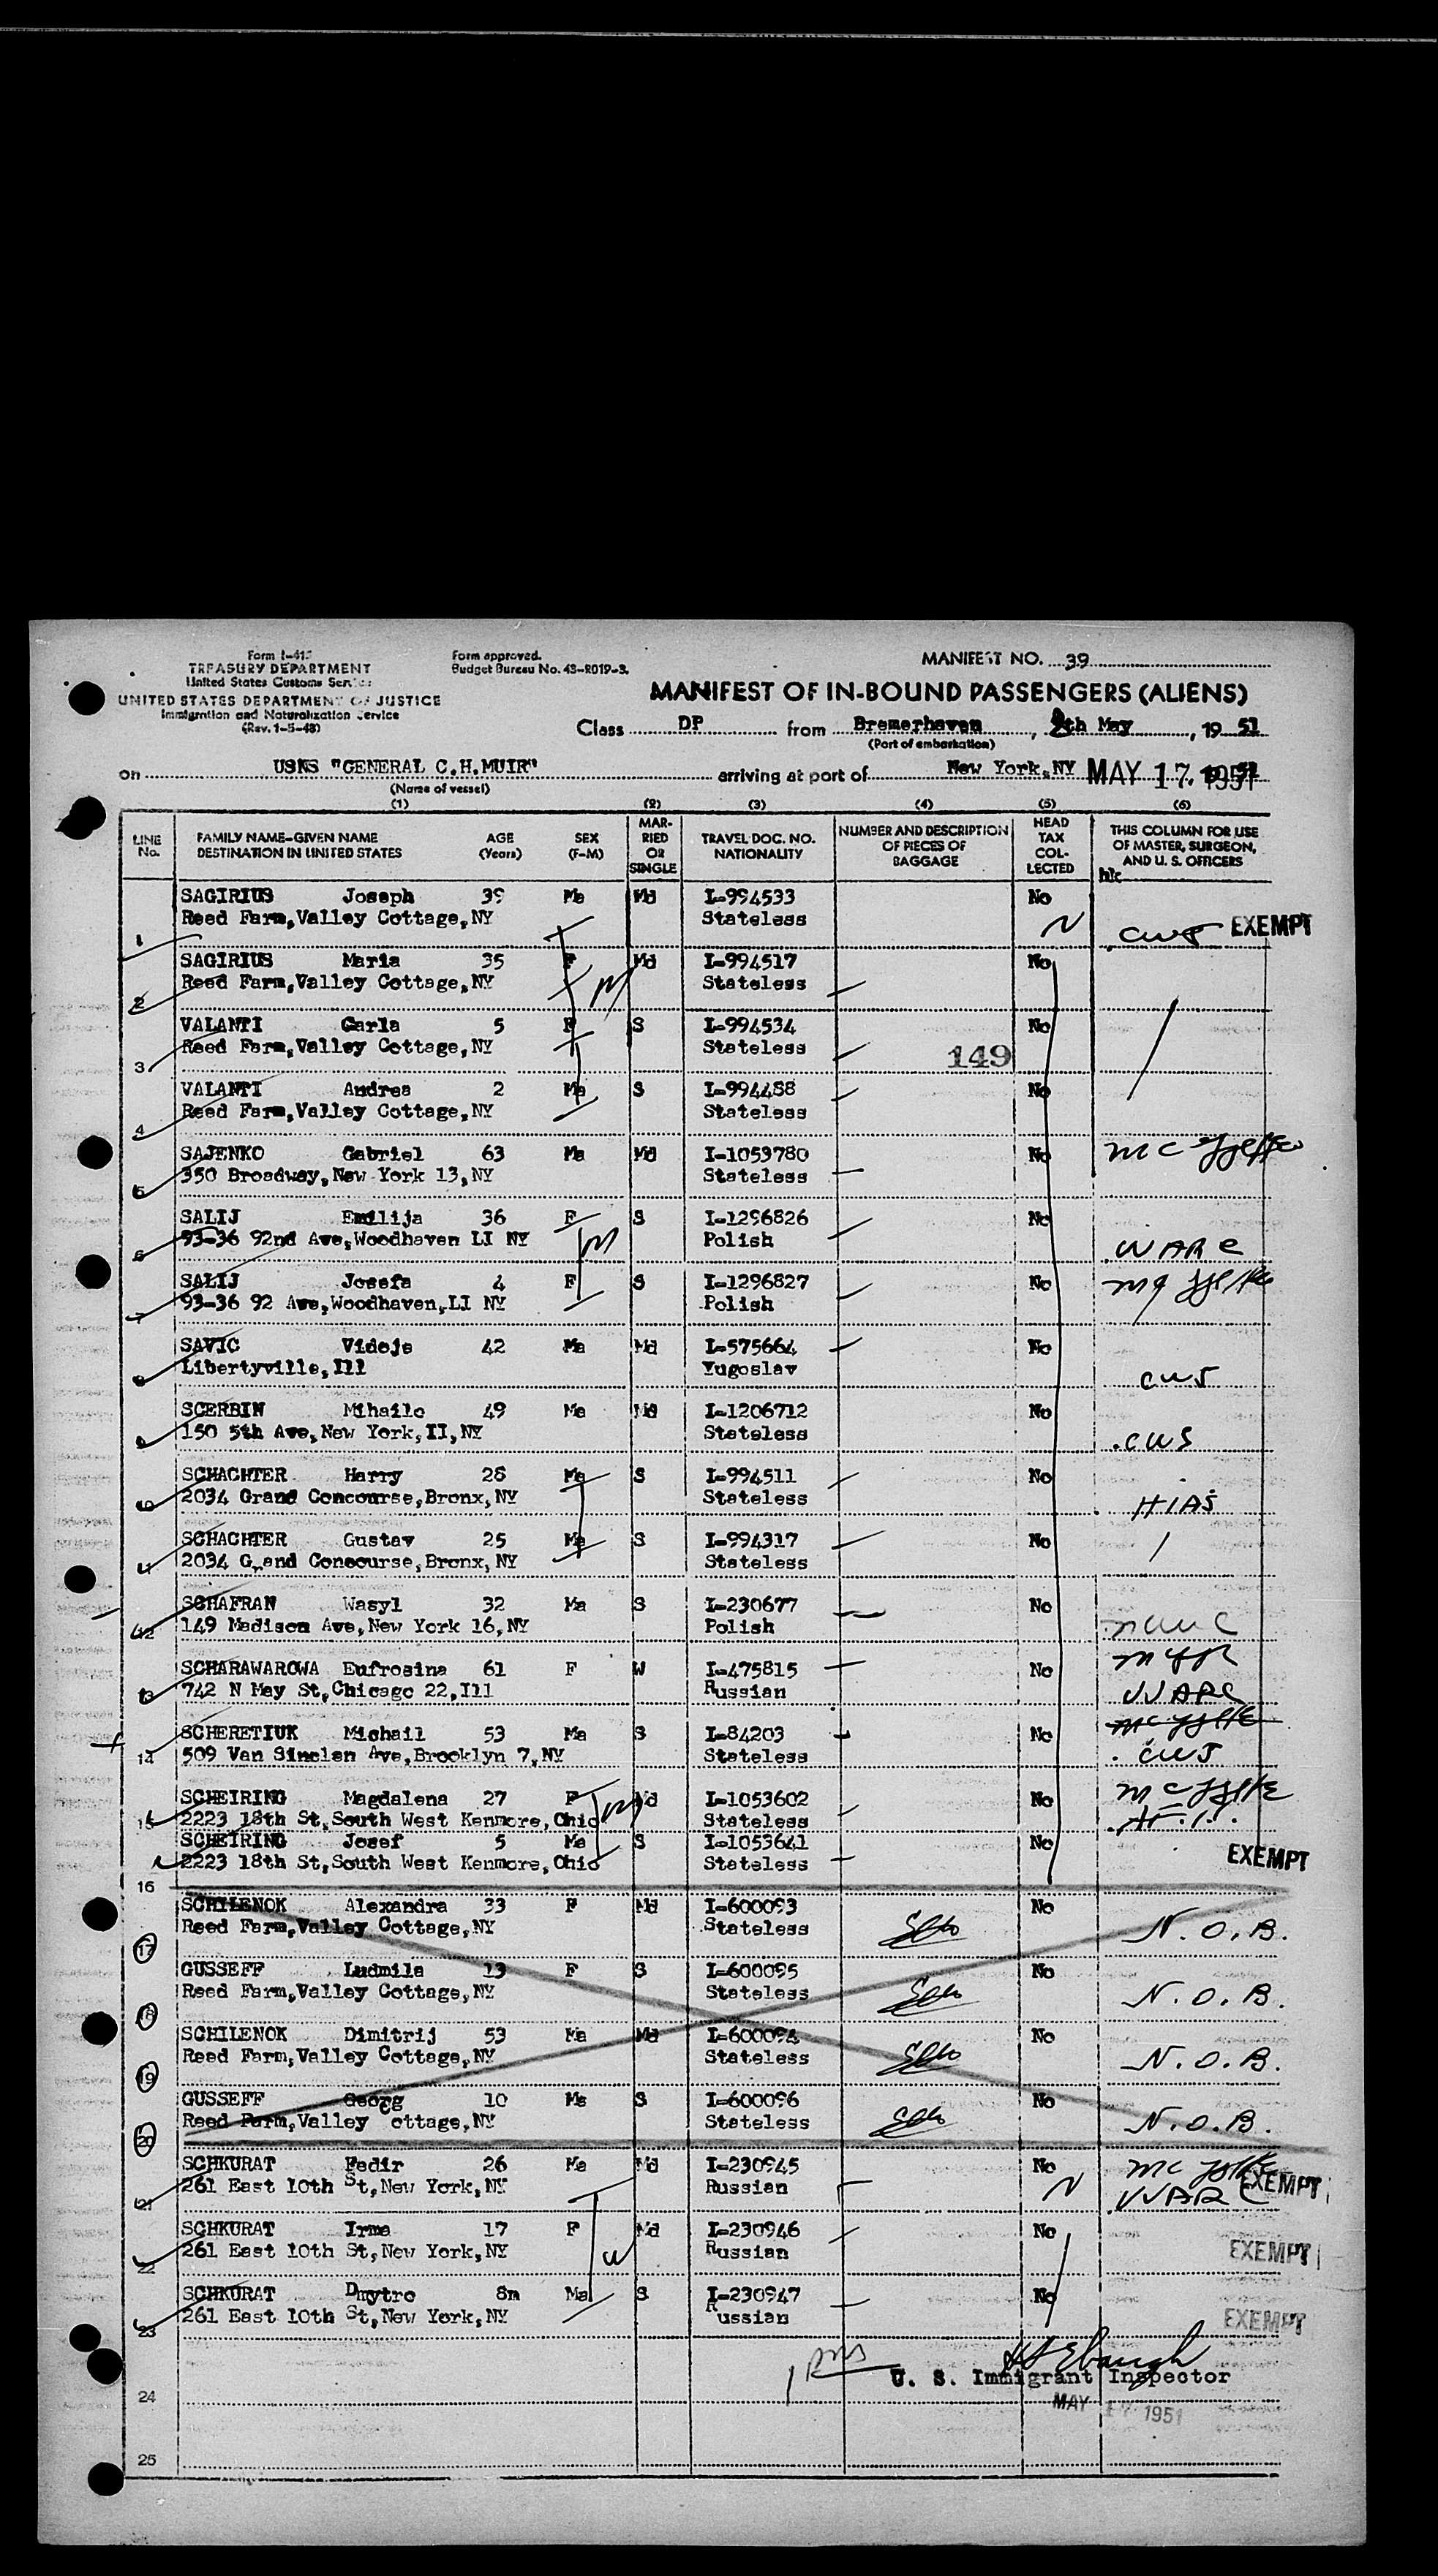 Form I-415
TREASURY DEPARTMENT
United States Customs Service
UNITED STATES DEPARTMENT OF JUSTICE
Immigration and Naturalization Service
(Rev. 1-5-48)
Form approved.
Budget Bureau No. 43-R019-3.
MANIFEST NO. 39
MANIFEST OF IN-BOUND PASSENGERS (ALIENS)
Class DP from Bremerhaven, 8th May, 19 51
(Port of embarkation)
on USNS "GENERAL C.H.MUIR" arriving at port of New York,NY MAY 17 1951
(Name of vessel)
(1) (2) (3) (4) (5) (6)
LINE No.
FAMILY NAME-GIVEN NAME
DESTINATION IN UNITED STATES
AGE (Years)
SEX (F-M)
MARRIED OR SINGLE
TRAVEL DOC. NO. NATIONALITY
NUMBER AND DESCRIPTION OF PIECES OF BAGGAGE
HEAD TAX COLLECTED
THIS COLUMN FOR USE OF MASTER, SURGEON, AND U. S. OFFICERS
SAGIRIUS Joseph 39 Ma Md I-994533 No
1 Reed Farm,Valley Cottage,NY Stateless CWS EXEMPT
SAGIRIUS Maria 35 F Md I-994517 No
2 Reed Farm,Valley Cottage,NY M Stateless
VALANTI Carla 5 F S I-994534 No
3 Reed Farm,Valley Cottage,NY Stateless 149
VALANTI Andrea 2 Ma S I-994488 No
4 Reed Farm,Valley Cottage,NY Stateless
SAJENKO Gabriel 63 Ma Md I-1053780 No
5 350 Broadway,New York 13,NY Stateless
SALIJ Emilija 36 F S I-1296826 No
6 93-36 92nd Ave,Woodhaven LI NY M Polish WARC
SALIJ Josefa 4 F S I-1296827 No
7 93-36 92 Ave,Woodhaven,LI NY Polish
SAVIC Videje 42 Ma Md I-575664 No
8 Libertyville,Ill Yugoslav CWS
SCERBIN Mihailo 49 Ma Md I-1206712 No
9 150 5th Ave,New York,II,NY Stateless CWS
SCHACHTER Harry 28 Ma S I-994511 No
10 2034 Grand Concourse,Bronx,NY Stateless HIAS
SCHACHTER Gustav 25 Ma S I-994317 No
11 2034 Grand Concourse,Bronx,NY Stateless
SCHAFRAN Wasyl 32 Ma S I-230677 No
12 149 Madison Ave,New York 16,NY Polish
SCHARAWAROWA Eufrosina 61 F W I-475815 No
13 742 N May St,Chicago 22,Ill Russian WARC
SCHERETIUK Michail 53 Ma S I-84203 No
14 509 Van Sinclen Ave,Brooklyn 7,NY Stateless CWS
SCHEIRING Magdalena 27 F Md I-1053602 No
15 2223 18th St,South West Kenmore,Ohio M Stateless
SCHEIRING Josef 5 Ma S I-1053641 No
16 2223 18th St,South West Kenmore,Ohio Stateless EXEMPT
SCHILENOK Alexandra 33 F Md I-600093 No
17 Reed Farm,Valley Cottage,NY Stateless N.O.B.
GUSSEFF Ludmila 13 F S I-600095 No
18 Reed Farm,Valley Cottage,NY Stateless N.O.B.
SCHILENOK Dimitrij 53 Ma Md I-600094 No
19 Reed Farm,Valley Cottage,NY Stateless N.O.B.
GUSSEFF Georg 10 Ma S I-600096 No
20 Reed Farm,Valley ottage,NY Stateless N.O.B.
SCHKURAT Fedir 26 Ma Md I-230945 No
21 261 East 10th St,New York,NY Russian WARC EXEMPT
SCHKURAT Irma 17 F Md I-230946 No
22 261 East 10th St,New York,NY W Russian EXEMPT
SCHKURAT Dmytro 8m Ma S I-230947 No
23 261 East 10th St,New York,NY Russian EXEMPT
U. S. Immigrant Inspector
24 MAY 17 1951
25